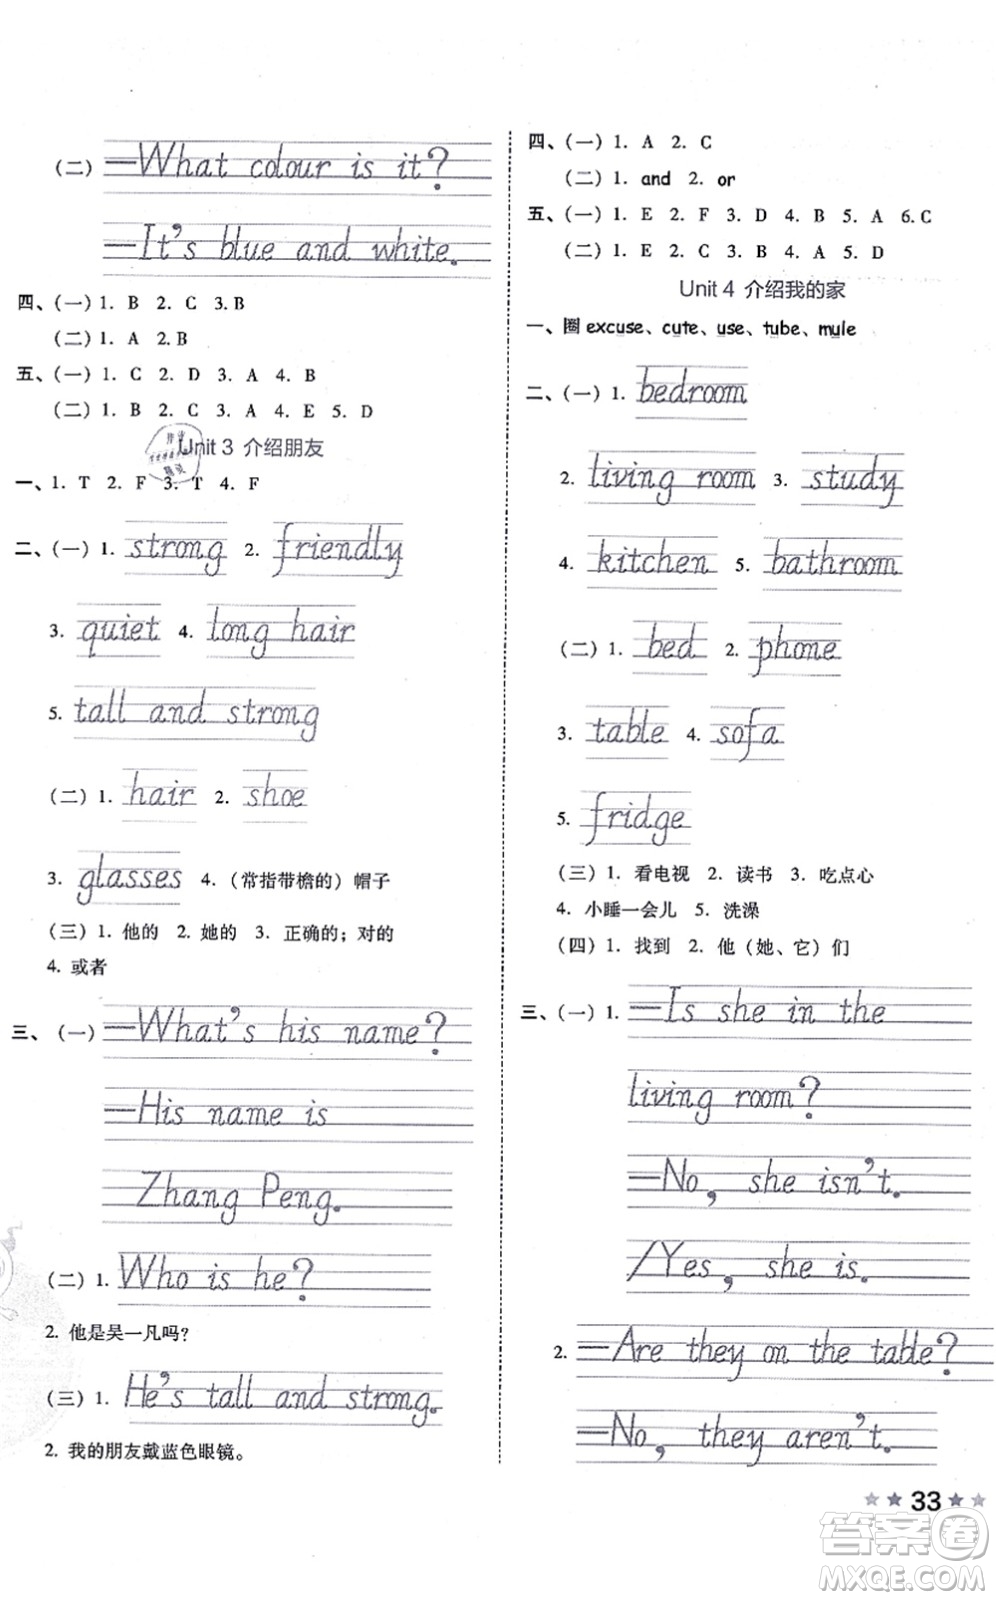 (二) —What colour is it?
—It's blue and white.
四、(一) 1. B 2. C 3. B
(二) 1. A 2. B
五、(一) 1. C 2. D 3. A 4. B
(二) 1. B 2. C 3. A 4. E 5. D
Unit 3 介绍朋友
一、1. T 2. F 3. T 4. F
二、(一) 1. strong 2. friendly
3. quiet 4. long hair
5. tall and strong
(二) 1. hair 2. shoe
3. glasses 4. (常指带檐的) 帽子
(三) 1. 他的 2. 她的 3. 正确的；对的
4. 或者
三、(一) —What's his name?
—His name is
Zhang Peng.
(二) 1. Who is he?
2. 他是吴一凡吗?
(三) 1. He's tall and strong.
2. 我的朋友戴蓝色眼镜。
四、(一) 1. A 2. C
(二) 1. and 2. or
五、(一) 1. E 2. F 3. D 4. B 5. A 6. C
(二) 1. E 2. C 3. B 4. A 5. D
Unit 4 介绍我的家
一、圈 excuse、cute、use、tube、mule
二、(一) 1. bedroom
2. living room 3. study
4. kitchen 5. bathroom
(二) 1. bed 2. phone
3. table 4. sofa
5. fridge
(三) 1. 看电视 2. 读书 3. 吃点心
4. 小睡一会儿 5. 洗澡
(四) 1. 找到 2. 他（她、它）们
三、(一) 1. —Is she in the
living room?
—No, she isn't.
/Yes, she is.
2. —Are they on the table?
—No, they aren't.
33
答案圈
MXQE.COM